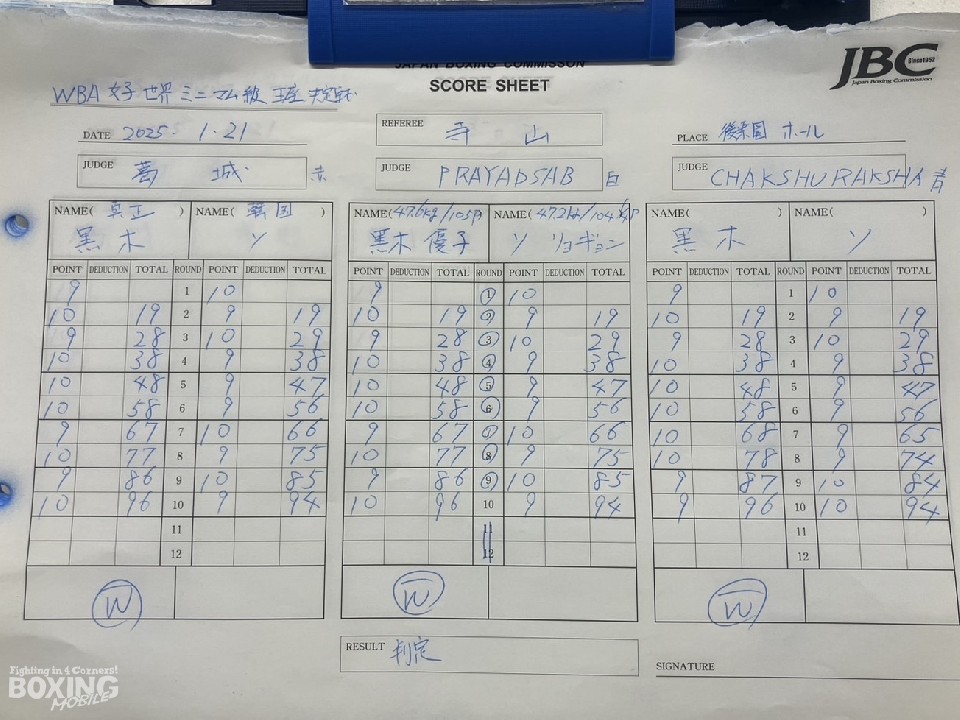 JAPAN BOXING COMMISSON
SCORE SHEET
JBC Since 1952
Japan Boxing Commission
WBA 女子 世界 ミニマム級 王座 決定戦
DATE 2025. 1. 21
REFEREE 寺 山
PLACE 後楽園 ホール
JUDGE 葛 城 赤
JUDGE PRAYADSAB 白
JUDGE CHAKSHU RAKSHA 青
NAME( 真正 ) NAME( 韓国 ) NAME(47.6kg/105P NAME(47.2kg/104 NAME( ) NAME( )
黒 木 ソ 黒木 優子 ソ リョギョン 黒 木 ソ
POINT DEDUCTION TOTAL ROUND POINT DEDUCTION TOTAL POINT DEDUCTION TOTAL ROUND POINT DEDUCTION TOTAL POINT DEDUCTION TOTAL ROUND POINT DEDUCTION TOTAL
9 1 10 9 1 10 9 1 10
10 19 2 9 19 10 19 2 9 19 10 19 2 9 19
9 28 3 10 29 9 28 3 10 29 9 28 3 10 29
10 38 4 9 38 10 38 4 9 38 10 38 4 9 38
10 48 5 9 47 10 48 5 9 47 10 48 5 9 47
10 58 6 9 56 10 58 6 9 56 10 58 6 9 56
9 67 7 10 66 9 67 7 10 66 10 68 7 9 65
10 77 8 9 75 10 77 8 9 75 10 78 8 9 74
9 86 9 10 85 9 86 9 10 85 9 87 9 10 84
10 96 10 9 94 10 96 10 9 94 9 96 10 10 94
11 11 11
12 12 12
W W W
RESULT 判定
SIGNATURE
Fighting in 4 Corners!
BOXING
MOBILE